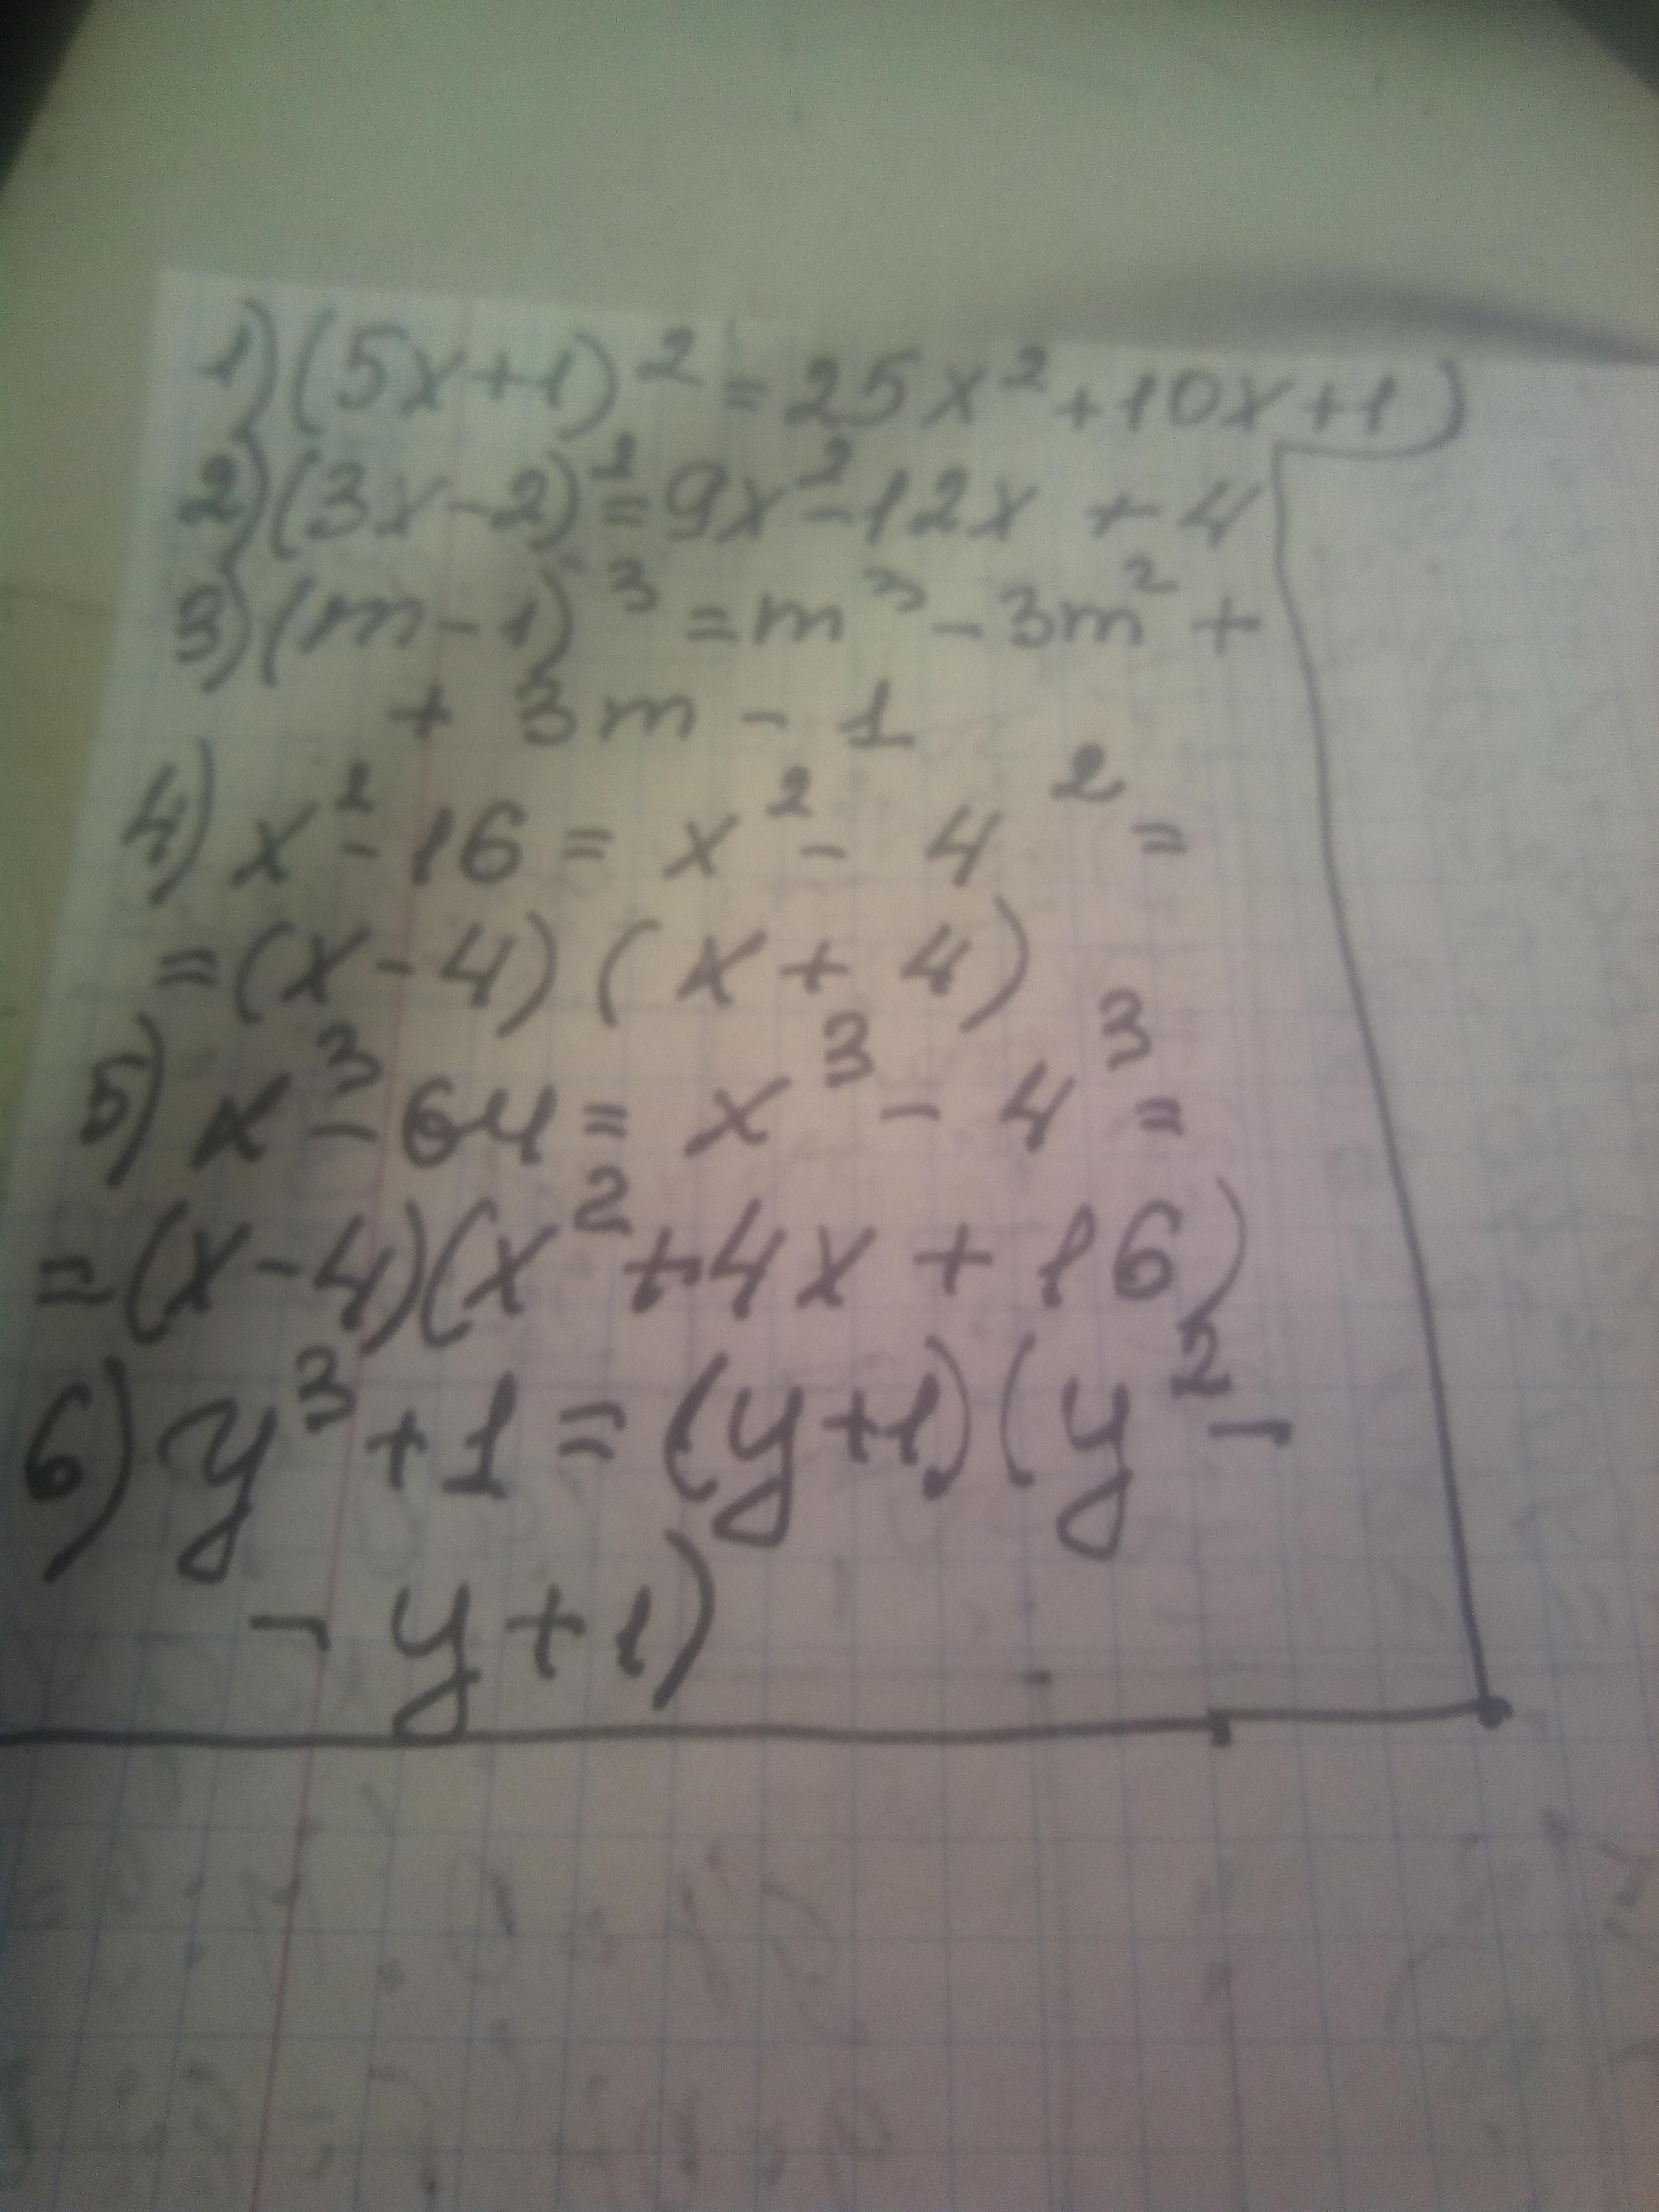 1) (5x+1)² = 25x² + 10x + 1)
2) (3x-2)² = 9x² - 12x + 4
3) (m-1)³ = m³ - 3m² +
+ 3m - 1
4) x² - 16 = x² - 4² =
= (x-4) (x + 4)
5) x³ - 64 = x³ - 4³ =
= (x-4)(x² + 4x + 16)
6) y³ + 1 = (y+1)(y² -
- y + 1)